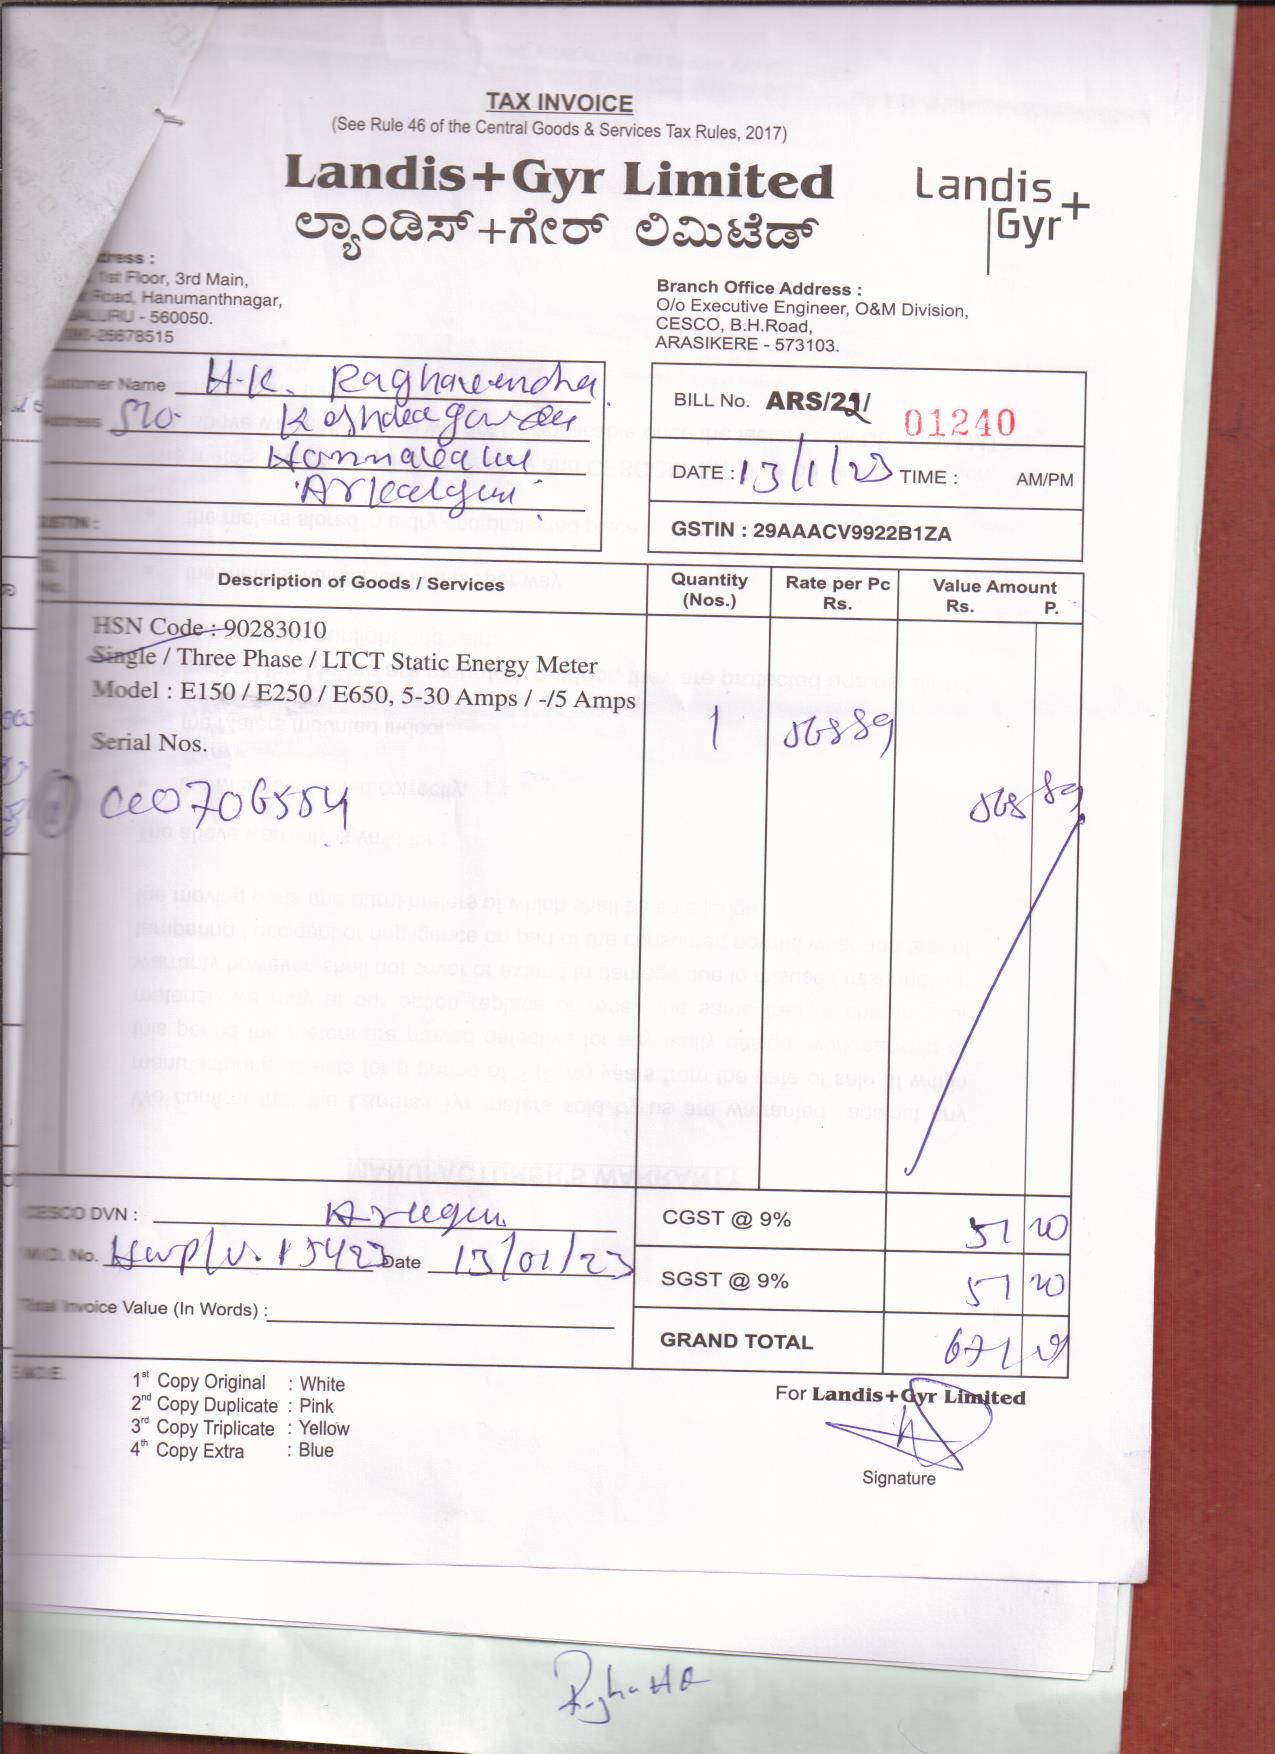 TAX INVOICE
(See Rule 46 of the Central Goods & Services Tax Rules, 2017)
Landis+Gyr Limited
ಲ್ಯಾಂಡಿಸ್+ಗೇರ್ ಲಿಮಿಟೆಡ್
Landis+
Gyr
dress :
1st Floor, 3rd Main,
Road, Hanumanthnagar,
ALURU - 560050.
080-26678515
Branch Office Address :
O/o Executive Engineer, O&M Division,
CESCO, B.H.Road,
ARASIKERE - 573103.
Customer Name H.K. Raghavendra
Address S/o.
GSTIN :
BILL No. ARS/22/ 01240
DATE : 13/1/23 TIME : AM/PM
GSTIN : 29AAACV9922B1ZA
Sl. No. Description of Goods / Services Quantity (Nos.) Rate per Pc Rs. Value Amount Rs. P.
HSN Code : 90283010
Single / Three Phase / LTCT Static Energy Meter
Model : E150 / E250 / E650, 5-30 Amps / -/5 Amps
1 568 89
Serial Nos.
568 89
706554
CESCO DVN :
CGST @ 9% 51 20
No. 15423 Date 13/01/23
SGST @ 9% 51 20
Total Invoice Value (In Words) :
GRAND TOTAL 671 29
NOTE
1st Copy Original : White
2nd Copy Duplicate : Pink
3rd Copy Triplicate : Yellow
4th Copy Extra : Blue
For Landis+Gyr Limited
Signature